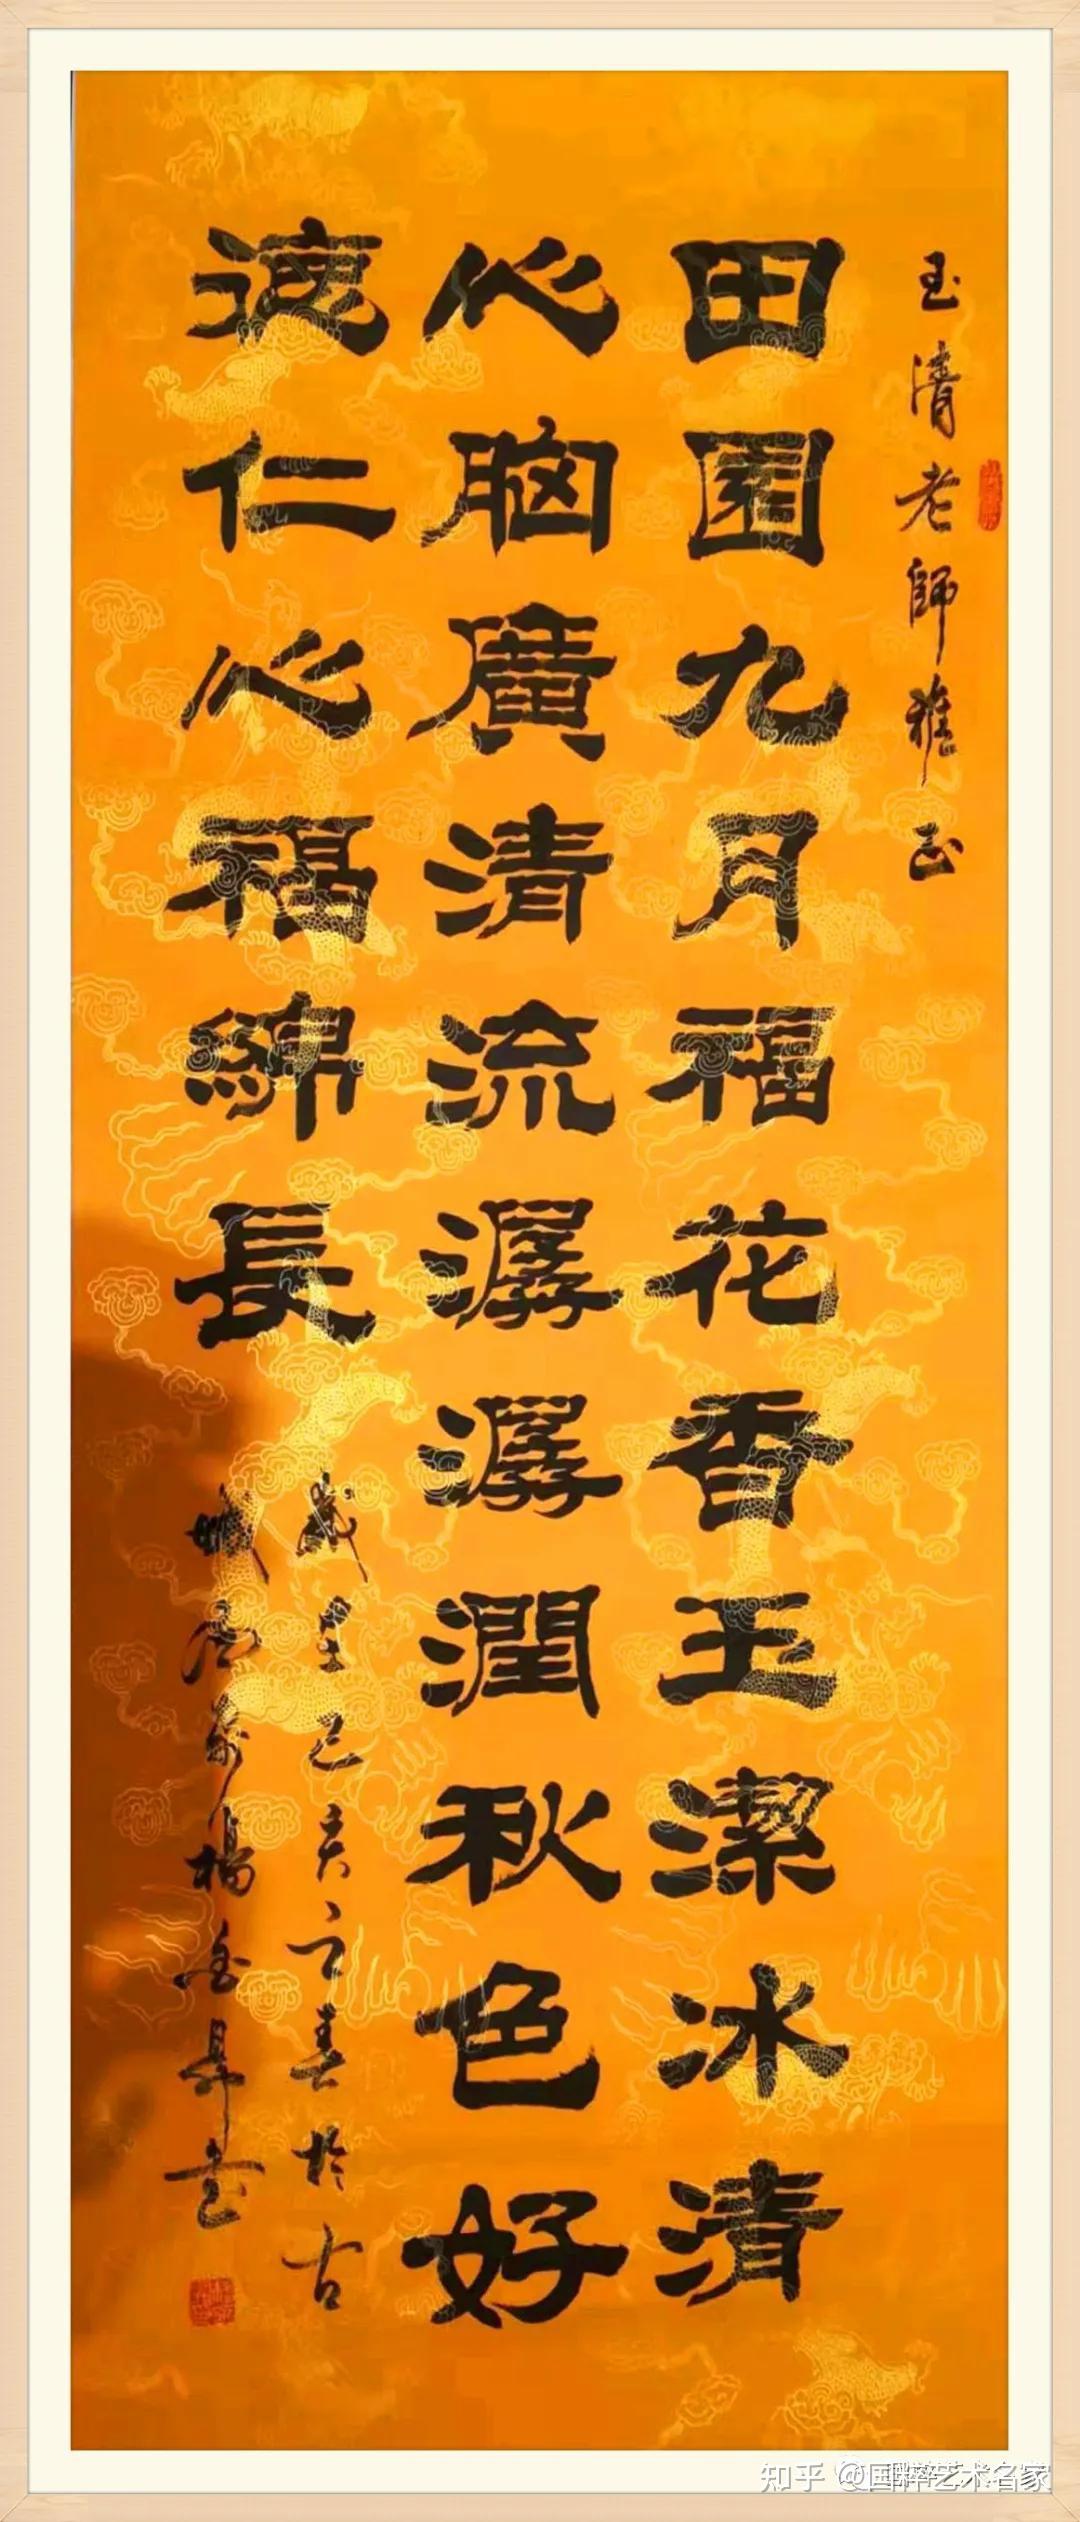 玉清老師雅正
田園九月福花香玉潔冰清
心胸廣清流潺潺潤秋色好
仁心福綿長
歲己亥春於古
城楊金昇書
知乎 @国粹艺术名家